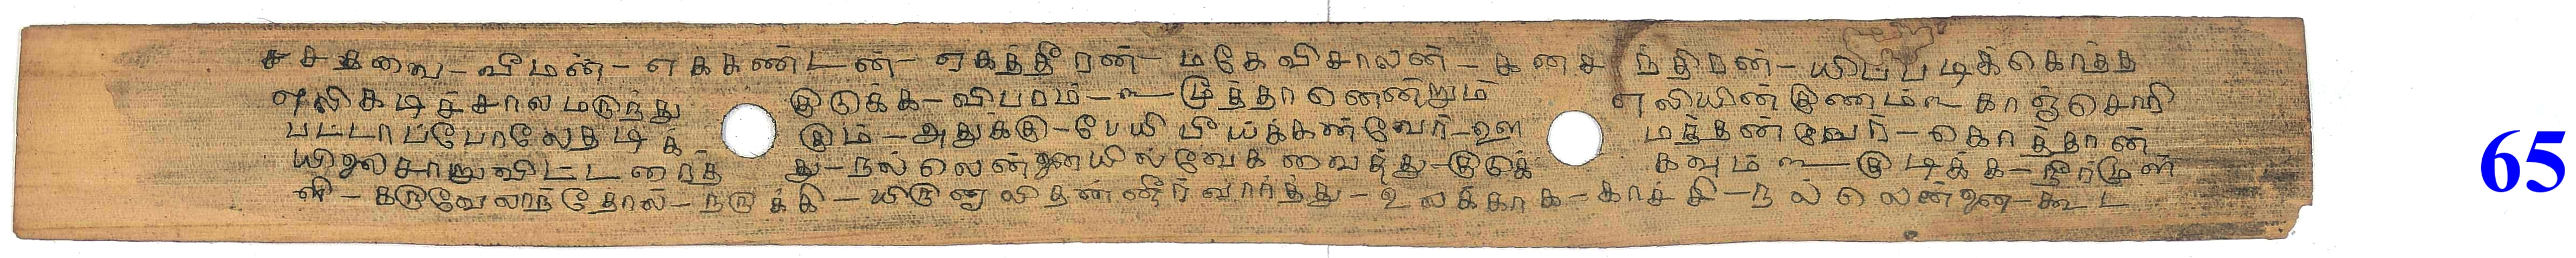 சசதவை - வீமன் - எக்கண்டன் - ஏகத்தீரன் - மகேவிசாலன் - கனச ந்திரன் - யிப்படிக்கொத்த
எலிகடிச்சாலமடுந்து குடுக்க - விபரம் - ௳ முத்தானென்றும் எலியின் குணம் ௳ காஞ்செறி
பட்டாப்போலேதடிக் கும் - அதுக்கு - பேயி பீய்க்கன்வேர் - ஊ மத்தன்வேர் - கொத்தான்
யிலைசாறுவிட்டரைத் து - நல்லெண்ணையில்வேகவைத்து - குடுக் கவும் ௳ குடிக்க - நீர்முள்
ளி - கடுவேலாந்தோல் - நறுக்கி - யிருனாலிதண்ணீர்வார்த்து - உலக்காக - காச்சி - நல்லெண்ணை - கூட
65